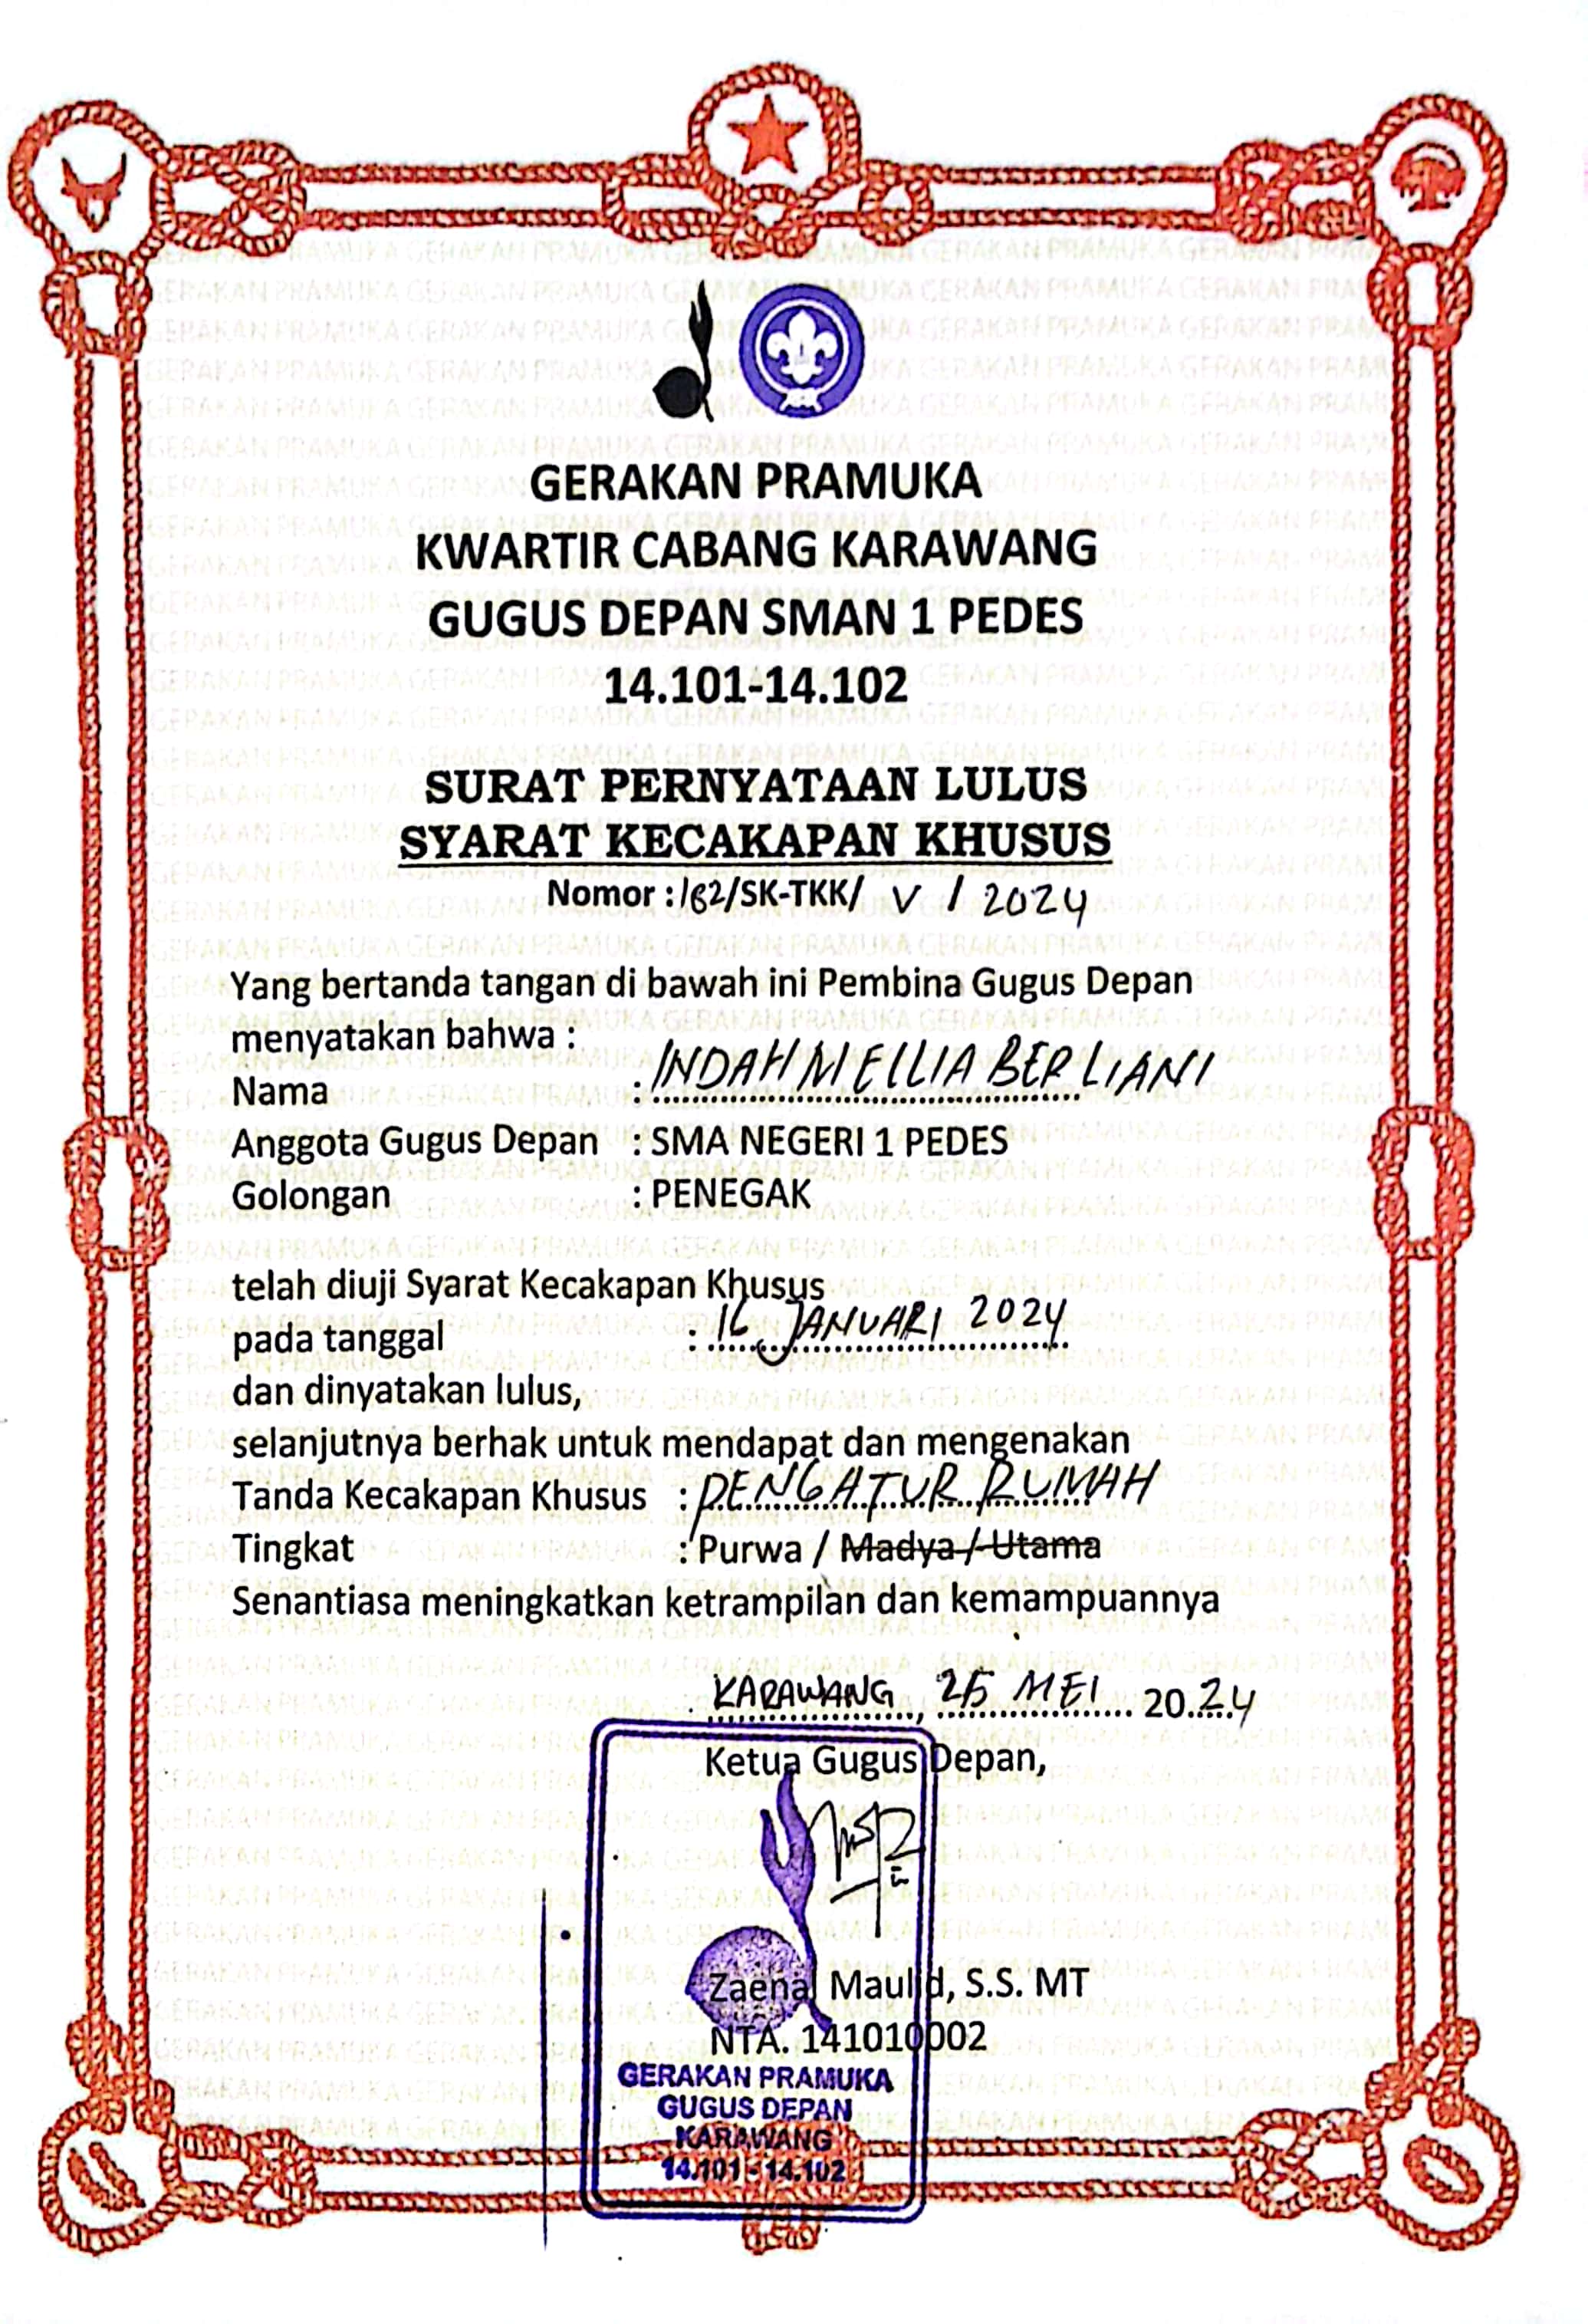 GERAKAN PRAMUKA
KWARTIR CABANG KARAWANG
GUGUS DEPAN SMAN 1 PEDES
14.101-14.102
SURAT PERNYATAAN LULUS
SYARAT KECAKAPAN KHUSUS
Nomor : 162/SK-TKK/ V / 2024
Yang bertanda tangan di bawah ini Pembina Gugus Depan
menyatakan bahwa :
Nama : INDAH MELLIA BERLIANI
Anggota Gugus Depan : SMA NEGERI 1 PEDES
Golongan : PENEGAK
telah diuji Syarat Kecakapan Khusus
pada tanggal : 16 JANUARI 2024
dan dinyatakan lulus,
selanjutnya berhak untuk mendapat dan mengenakan
Tanda Kecakapan Khusus : PENGATUR RUMAH
Tingkat : Purwa / Madya / Utama
Senantiasa meningkatkan ketrampilan dan kemampuannya
KARAWANG, 25 MEI 2024
Ketua Gugus Depan,
Zaenal Maulid, S.S. MT
NTA. 141010002
GERAKAN PRAMUKA
GUGUS DEPAN
KARAWANG
14.101 - 14.102